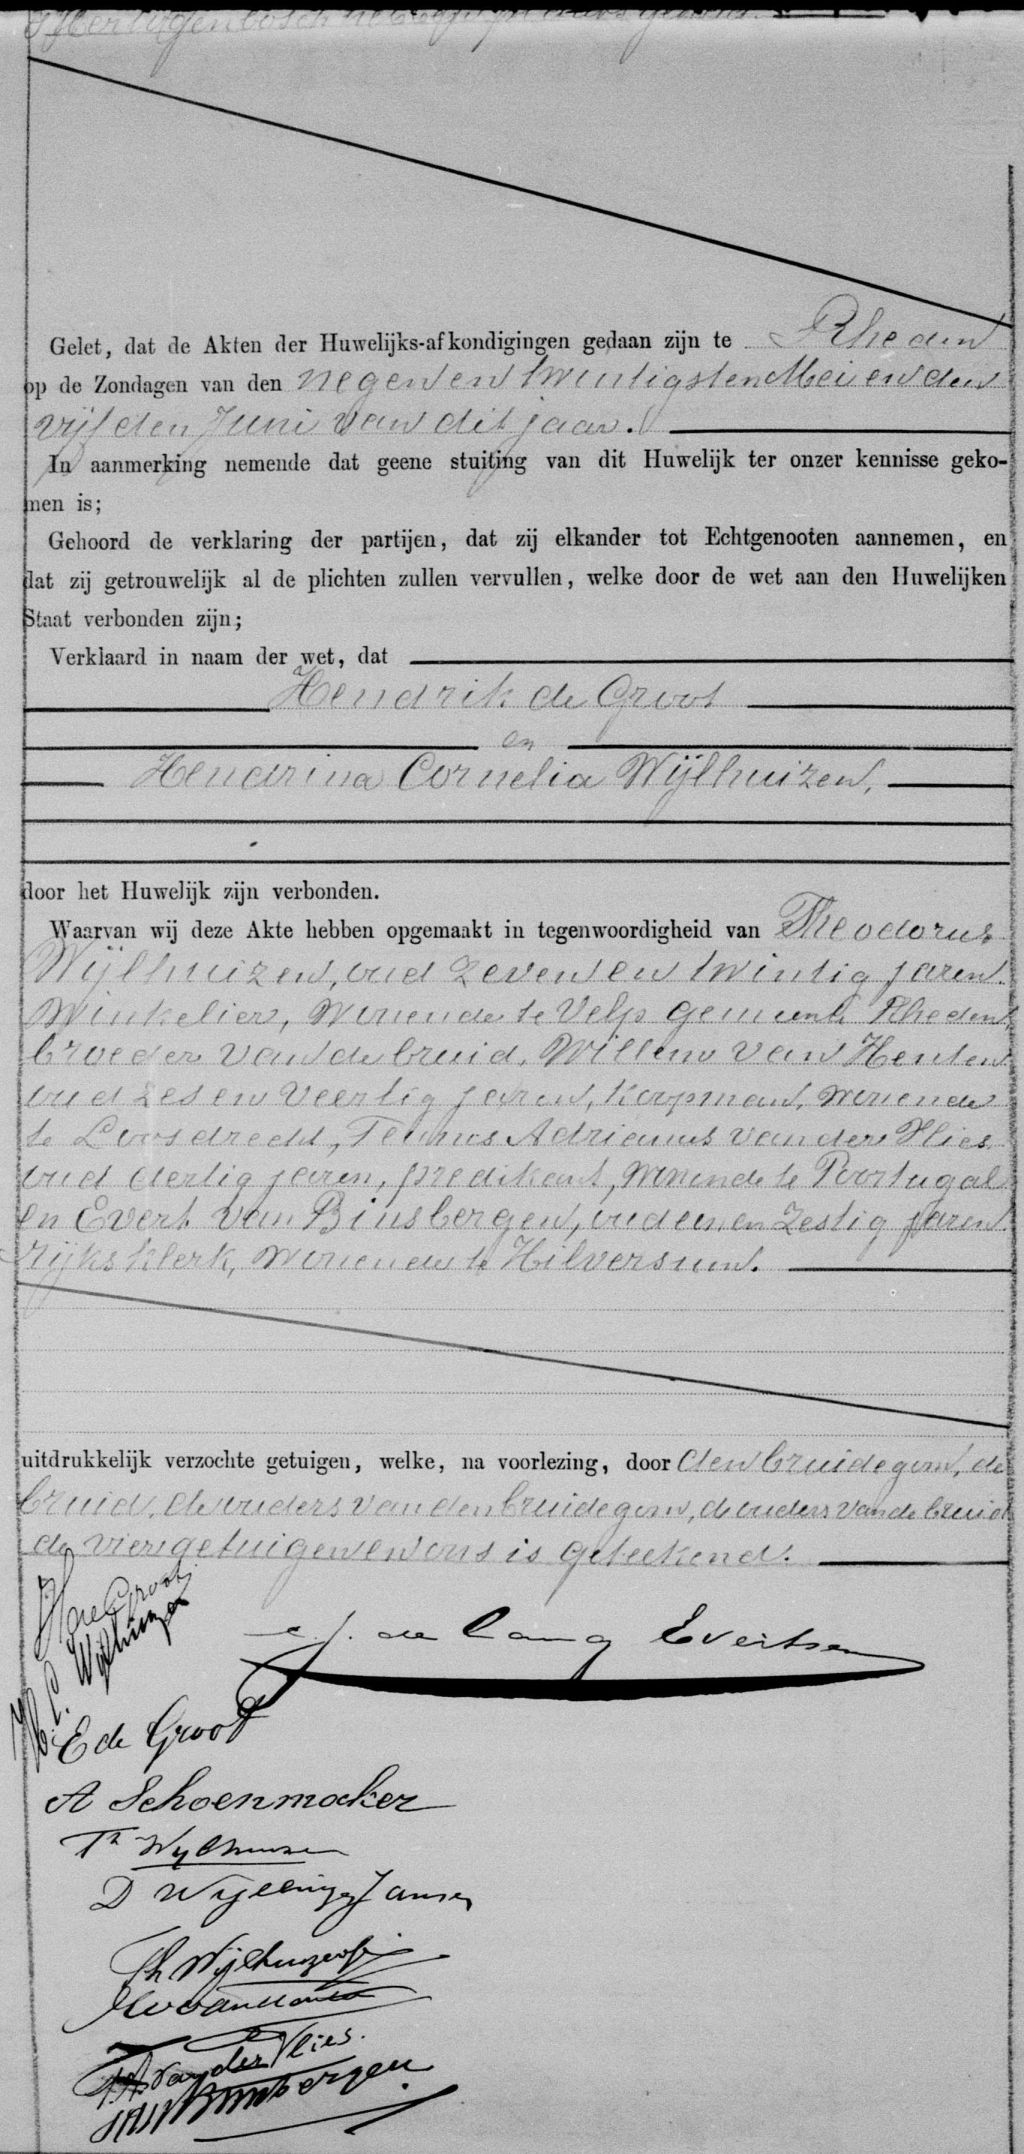 Gelet, dat de Akten der Huwelijks-afkondigingen gedaan zijn te Rheden
op de Zondagen van den negen en twintigsten Mei en den
vijfden Juni van dit jaar.
In aanmerking nemende dat geene stuiting van dit Huwelijk ter onzer kennisse geko-
men is;
Gehoord de verklaring der partijen, dat zij elkander tot Echtgenooten aannemen, en
dat zij getrouwelijk al de plichten zullen vervullen, welke door de wet aan den Huwelijken
Staat verbonden zijn;
Verklaard in naam der wet, dat
Hendrik de Groot
en
Hendrina Cornelia Wijlhuizen,
door het Huwelijk zijn verbonden.
Waarvan wij deze Akte hebben opgemaakt in tegenwoordigheid van Theodorus
Wijlhuizen, oud zeven en twintig jaren.
Winkelier, wonende te Velp gemeente Rheden,
broeder van de bruid, Willem van Henten
oud zes en veertig jaren, koopman, wonende
te Loosdrecht, Teunis Adrianus van der Vlies
oud dertig jaren, predikant, wonende te Poortugal
en Evert van Binsbergen, oud een en zestig jaren
rijksklerk, wonende te Hilversum.
uitdrukkelijk verzochte getuigen, welke, na voorlezing, door den bruidegom, de
bruid, de ouders van den bruidegom, de ouders van de bruid
de vier getuigen en ons is geteekend.
H de Groot
H. C. Wijlhuizen
de Lang Evertsen
E de Groot
A Schoenmaker
Th Wijlhuizen
D Jansen
Th Wijlhuizen
T.A. van der Vlies.
Binsbergen